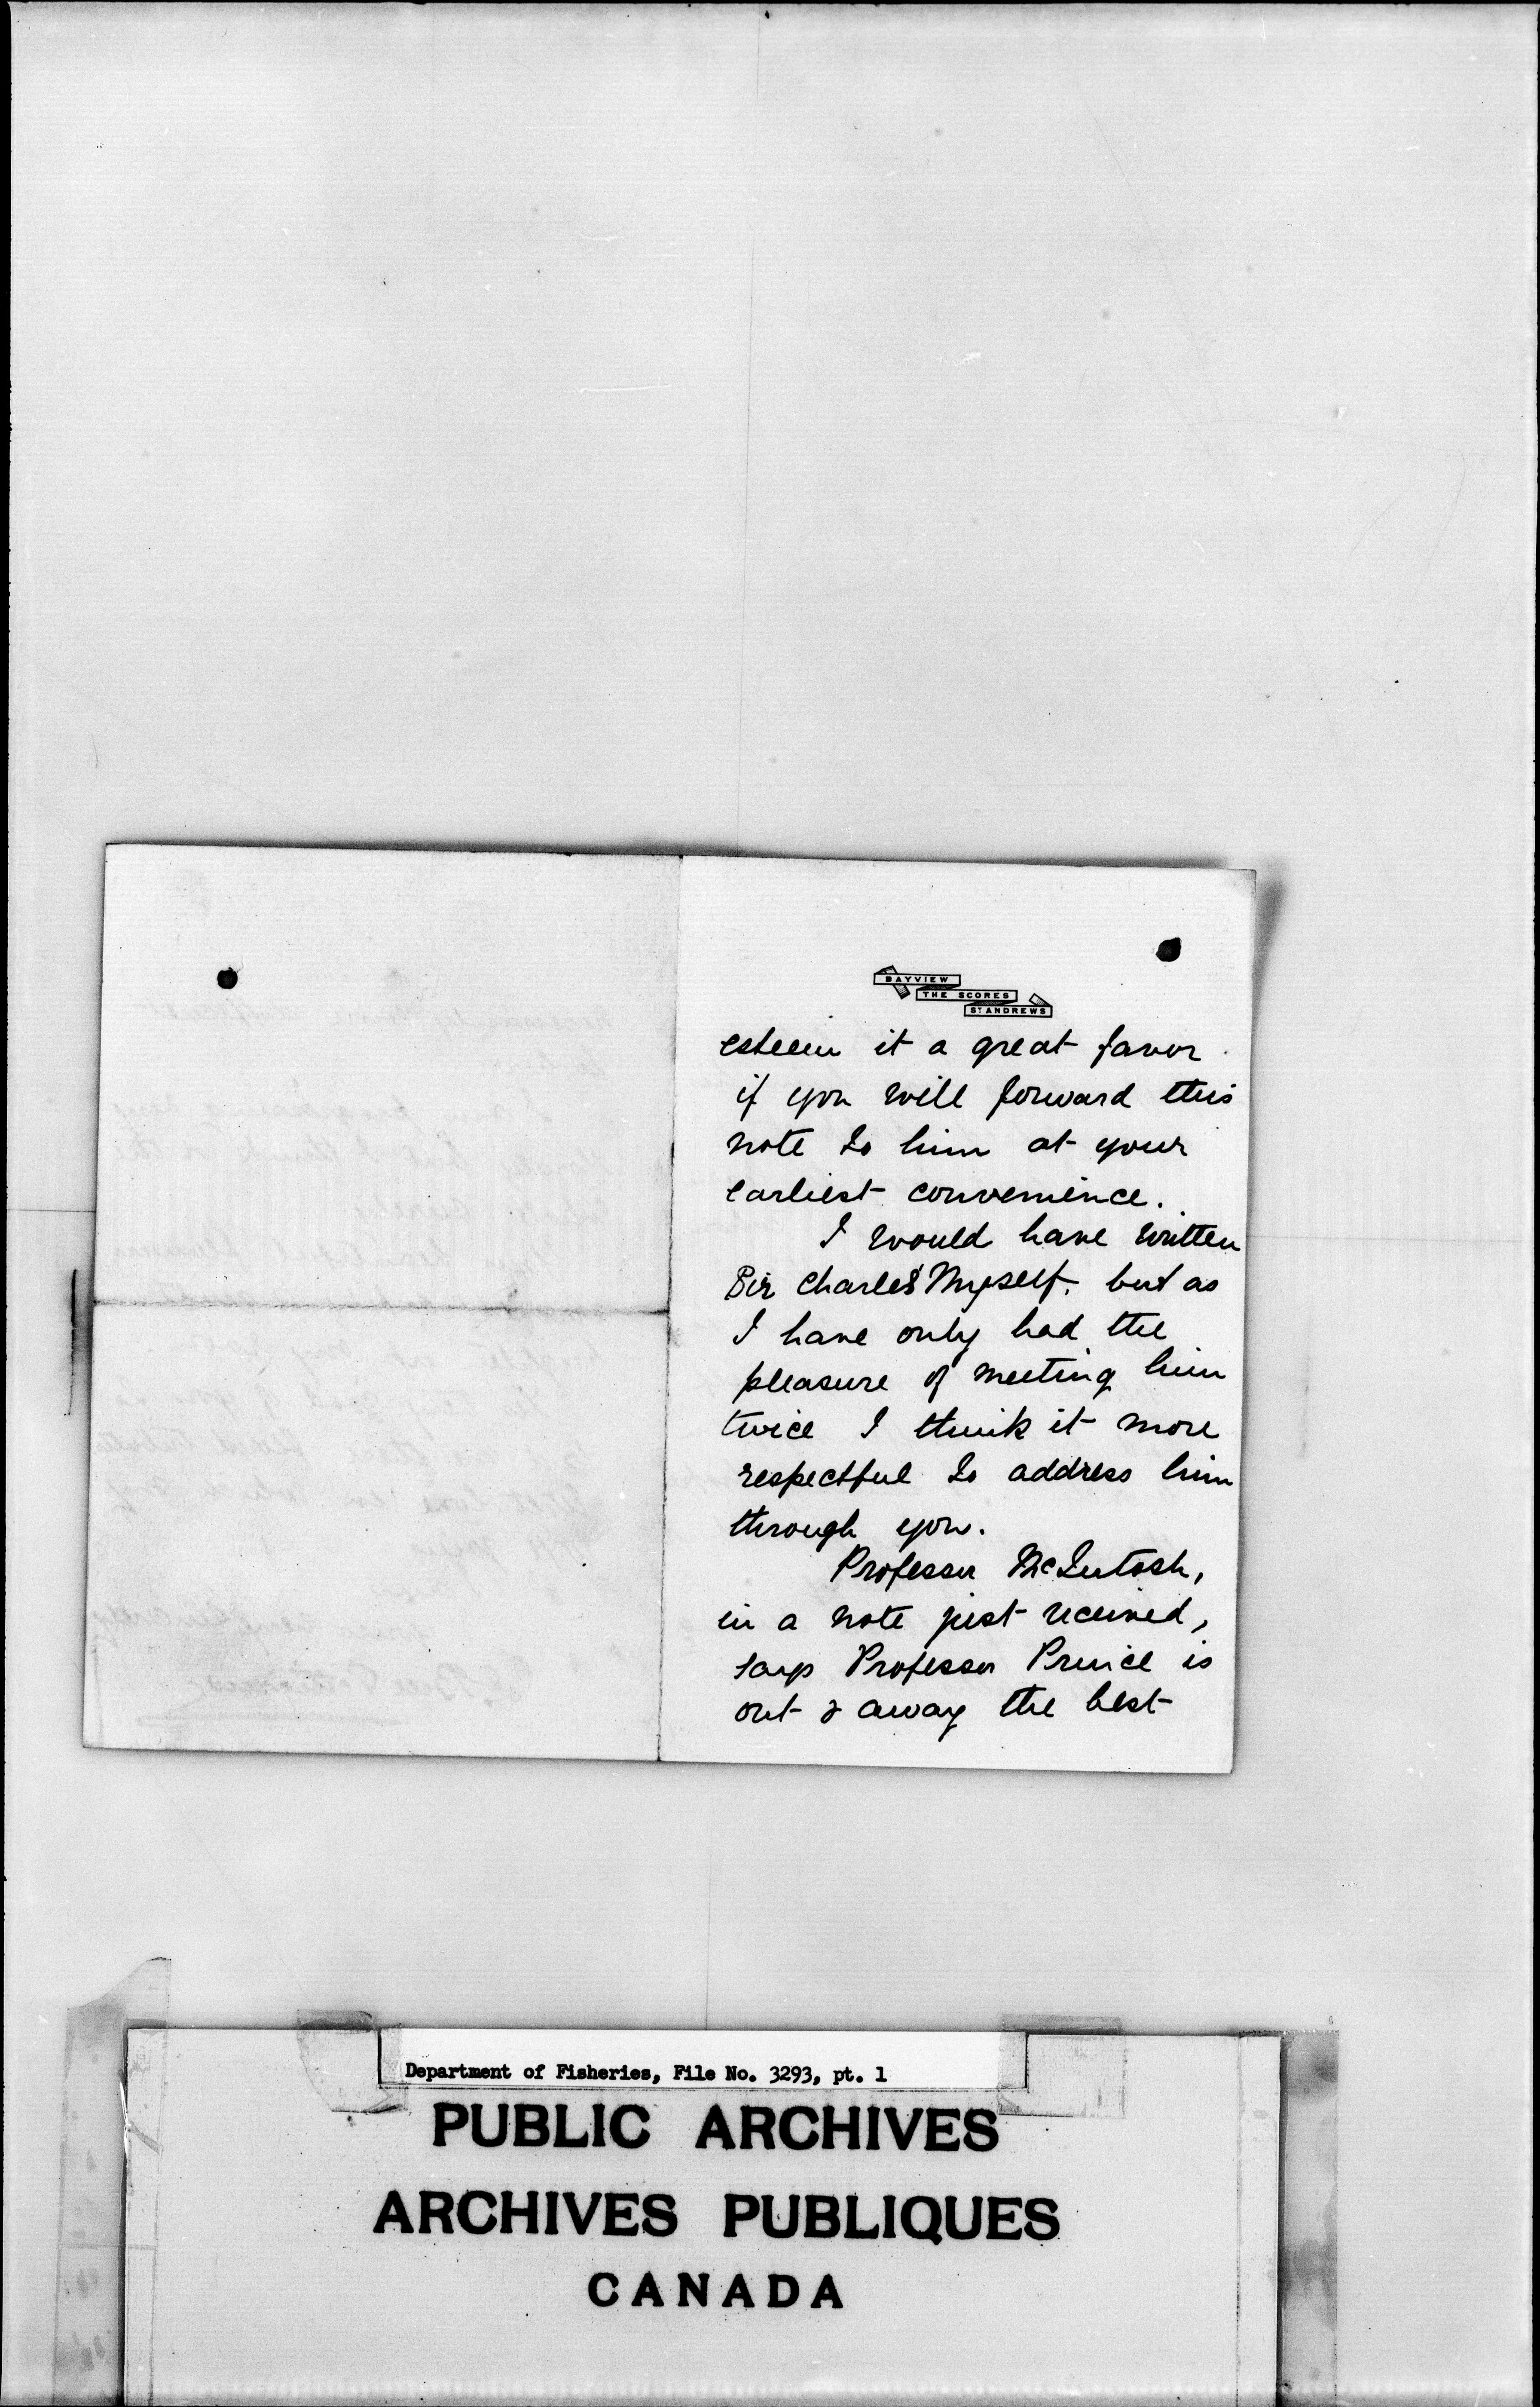 BAYVIEW
THE SCORES
ST ANDREWS
esteem it a great favor
if you will forward this
note to him at your
earliest convenience.
I would have written
Sir Charles myself, but as
I have only had the
pleasure of meeting him
twice I think it more
respectful to address him
through you.
Professor McIntosh,
in a note just received,
says Professor Prince is
out & away the best
Department of Fisheries, File No. 3293, pt. 1
PUBLIC ARCHIVES
ARCHIVES PUBLIQUES
CANADA